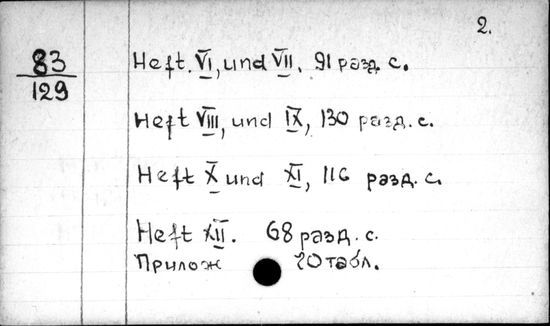 2.
83
129
Heft. VI, und VII. 91 разд. с.
Heft VIII, und IX, 130 разд. с.
Heft X und XI, 116 разд. с.
Heft XII. 68 разд. с.
Прилож 20 табл.